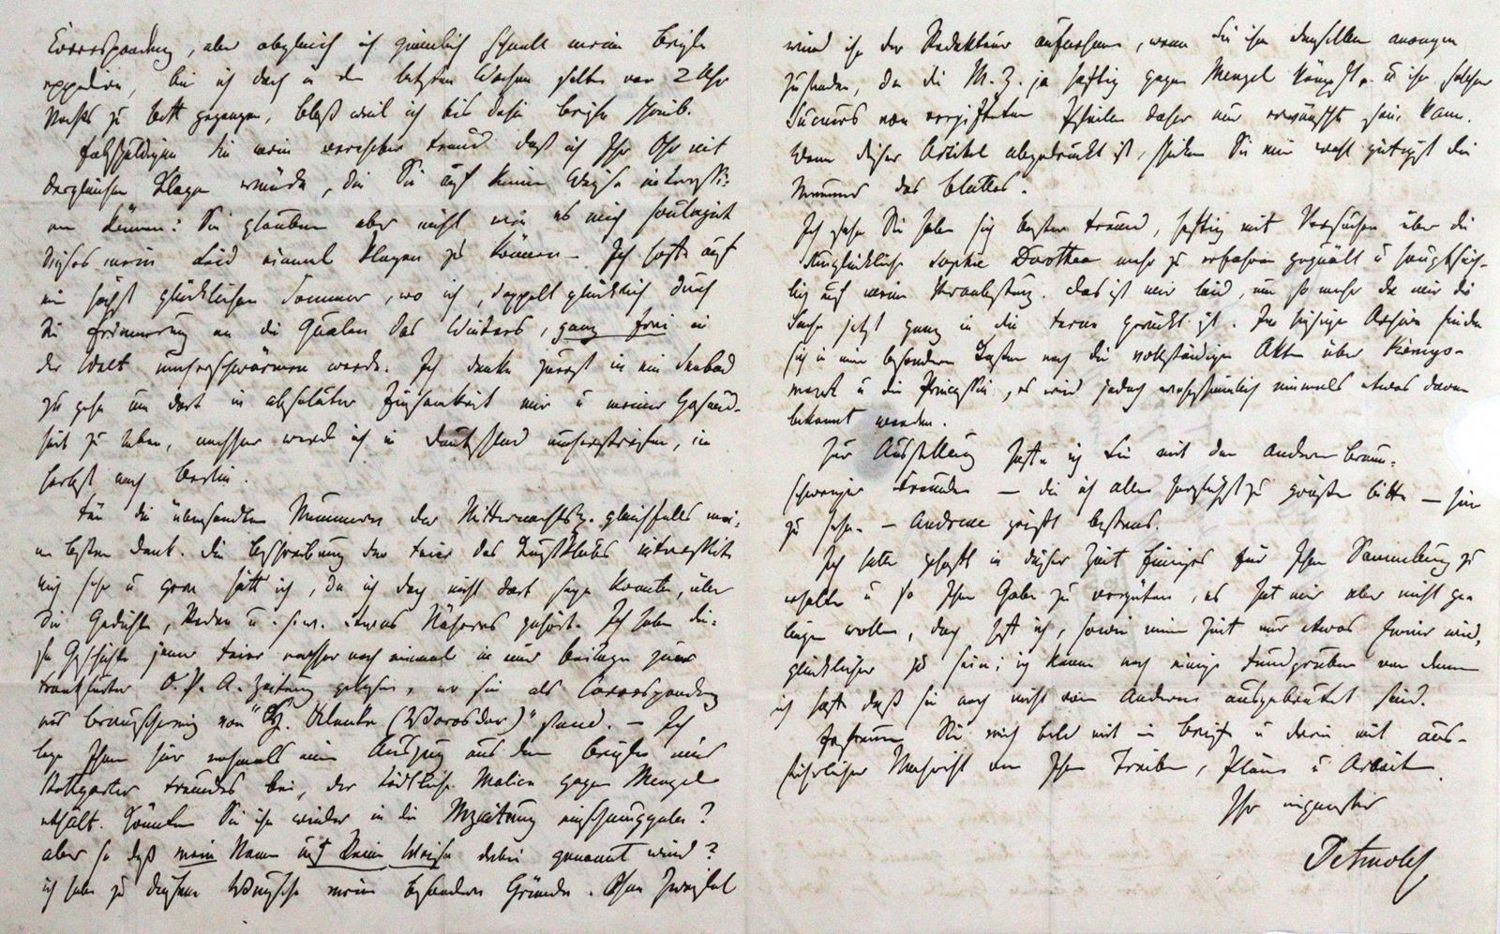 Correspondenz, aber obgleich ich ziemlich schnell meine Briefe
expedire, bin ich doch in den letzten Wochen selten vor 2 Uhr
Nachts zu Bett gegangen, bloß weil ich bis dahin Briefe schrieb.
Entschuldigen Sie mein verehrter Freund daß ich Ihr Ohr mit
dergleichen Klagen ermüde, die Sie auf keine Weise interessi-
ren können: Sie glauben aber nicht wie es mich soulagirt
dieses mein Leid einmal klagen zu können. – Ich hoffe auf
ein höchst glücklichen Sommer, wo ich, doppelt glücklich durch
die Erinnerung an die Qualen des Winters, ganz frei in
der Welt umherschwärmen werde. Ich denke zuerst in ein Seebad
zu gehn um dort in absoluter Einsamkeit mir u meiner Gesund-
heit zu leben, nachher werde ich in Deutschland umherstreifen, im
Herbst nach Berlin.
Für die übersandten Nummern der Mitternachtsz. gleichfalls mei-
nen besten Dank. Die Beschreibung der Feier des Kunstklubs interessirte
mich sehr u gern hätt ich, da ich doch nicht dort seyn konnte, über
die Gedichte, Reden u. s. w. etwas Näheres gehört. Ich habe die-
se Geschichte jener Feier nachher noch einmal in einer Beilage zur
Frankfurter O. P. A. Zeitung gelesen, wo sie als Correspondenz
aus Braunschweig von "Hz. Klencke (Maorosder)" stand. – Ich
lege Ihnen hier nochmals einen Auszug aus dem Briefe eines
Stuttgarter Freundes bei, der tödtliche Malice gegen Menzel
enthält. Könnten Sie ihn wieder in die Mzeitung einschmuggeln?
aber so daß mein Name auf keine Weise dabei genannt wird?
ich habe zu diesem Wunsche meine besonderen Gründe. Ohne Zweifel
wird ihn der Redakteur aufnehmen, wenn Sie ihm denselben anonym
zusenden, da die M. Z. ja heftig gegen Menzel kämpft, u ihr solcher
Succurs von vergifteten Pfeilen daher nur erwünscht sein kann.
Wenn dieser Artikel abgedruckt ist, schicken Sie mir wohl gütigst die
Nummer des Blattes.
Ich sehe Sie haben sich bester Freund, heftig mit Versuchen über die
unglückliche Sophie Dorothea mehr zu erfahren gequält u hauptsäch-
lich auf meine Veranlassung. Das ist mir leid, um so mehr da mir die
Sache jetzt ganz in die Ferne gerückt ist. Im hiesigen Archive finden
sich in einem besonderen Kasten noch die vollständigen Akten über Königs-
marck u die Prinzessin, es wird jedoch wahrscheinlich niemals etwas davon
bekannt werden.
Zur Ausstellung hoffe ich Sie mit den anderen Braun-
schweiger Freunden – die ich alle herzlichst zu grüßen bitte – hier
zu sehn. – Andreae grüßt bestens.
Ich hatte gehofft in dieser Zeit Einiges für Ihre Sammlung zu
erhalten u so Ihre Gabe zu vergüten, es hat mir aber nicht ge-
lingen wollen, doch hoff ich, sowie meine Zeit nur etwas freier wird,
glücklicher zu sein; ich kenne noch einige Fundgruben von denen
ich hoffe daß sie noch nicht von Anderen ausgebeutet sind.
Erfreuen Sie mich bald mit ein Briefe u darin mit aus-
führlicher Nachricht von Ihrem Treiben, Plänen u Arbeiten.
Ihr eigenster
Detmold